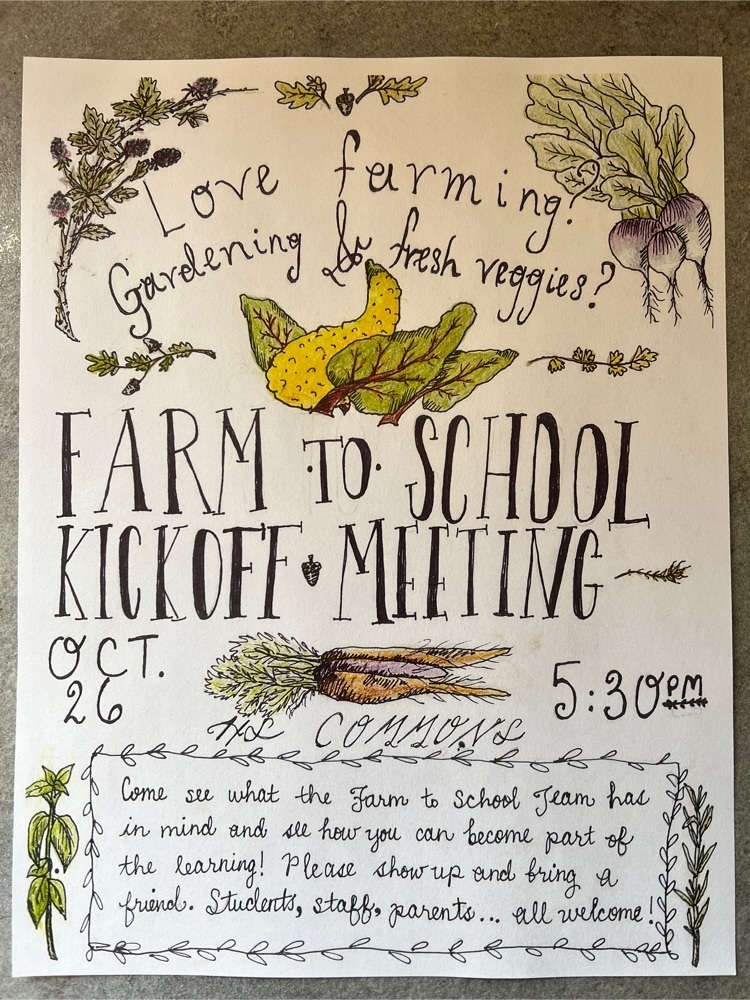 Love farming?
Gardening & fresh veggies?
FARM ·TO· SCHOOL
KICKOFF MEETING
OCT.
26
5:30PM
HS COMMONS
Come see what the Farm to School Team has
in mind and see how you can become part of
the learning! Please show up and bring a
friend. Students, staff, parents... all welcome!